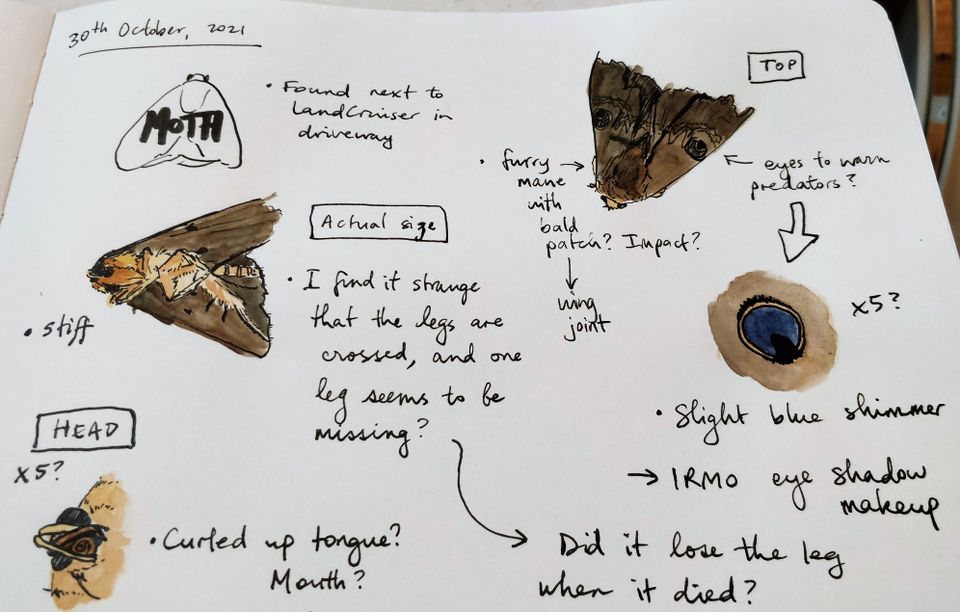 30th October, 2021
MOTH
• Found next to
LandCruiser in
driveway
TOP
• furry →
mane
with
bald
patch? Impact?
↓
wing
joint
← eyes to warn
predators?
Actual size
• I find it strange
that the legs are
crossed, and one
leg seems to be
missing?
• stiff
x5?
• Slight blue shimmer
→ IRMO eye shadow
makeup
HEAD
x5?
• Curled up tongue?
Mouth?
Did it lose the leg
when it died?